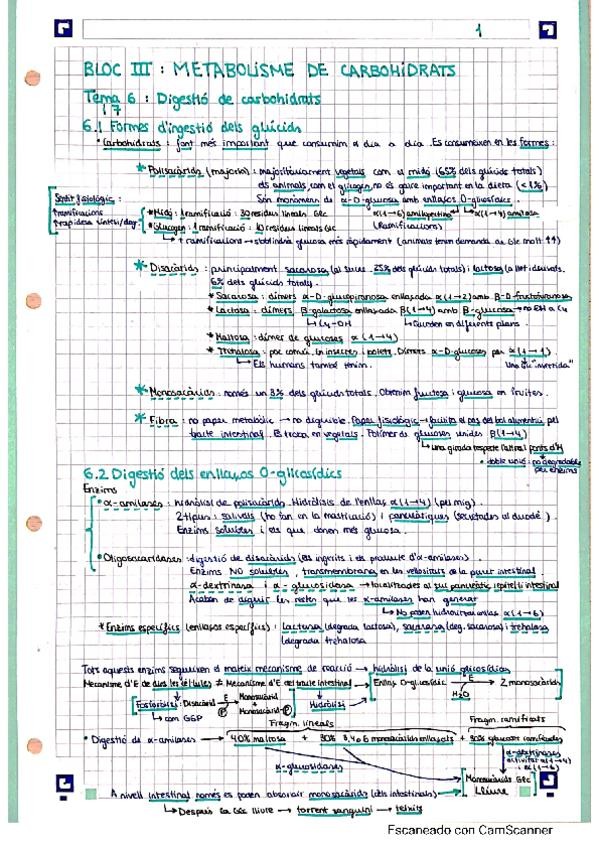 1
BLOC III : METABOLISME DE CARBOHIDRATS
Tema 6 : Digestió de carbohidrats
17
6.1 Formes d'ingestió dels glúcids
• Carbohidrats : font més important que consumim a dia a dia. Es consumeixen en les formes :
* Polisacàrids (majoria) : majoritàriament vegetals com el midó (65% dels glúcids totals)
els animals com el glicogen no és gaire important en la dieta (<1%)
Són monòmers de α-D-glucosa amb enllaços O-glicosídics.
Sentit fisiològic :
ramificacions
+ rapidesa síntesi/deg.
* Midó : 1 ramificació : 30 residus lineals Glc α(1→6) amilopectina α(1→4) amilosa
(Ramificacions)
* Glucogen : 1 ramificació : 10 residus lineals Glc
+ ramificacions → s'obtindrà glucosa més ràpidament (animals tenen demanda de Glc molt ↑↑)
* Disacàrids : principalment sacarosa (al sucre. 25% dels glúcids totals) i lactosa (a llet i derivats.
6% dels glúcids totals).
* Sacarosa : dímers α-D-glucopiranosa enllaçada α(1→2) amb β-D-fructofuranosa
* Lactosa : dímers β-galactosa enllaçada β(1→4) amb β-glucosa → no OH a C4
C4-OH
Queden en diferents plans.
* Maltosa : dímer de glucoses α(1→4)
* Trehalosa : poc comú. En insectes i bolets. Dímers α-D-glucoses per α(1→1).
Els humans també tenim.
Una Glc "invertida"
* Monosacàrids : només un 3% dels glúcids totals. Obtenim fructosa i glucosa en fruites.
* Fibra : no paper metabòlic → no digerible. Paper fisiològic → facilita el pas del bol alimentari pel
tracte intestinal. Es troba en vegetals. Polímer de glucoses unides β(1→4)
una girada respecte l'altra! ponts d'H
• doble unió : no degradable
per enzims
6.2 Digestió dels enllaços O-glicosídics
Enzims
• α-amilases : hidròlisi de polisacàrids. Hidròlisis de l'enllaç α(1→4) (pel mig).
2 tipus : salivals (ho fan en la masticació) i pancreàtiques (secretades al duodè).
Enzims solubles i els que donen més glucosa.
• Oligosacaridases : digestió de disacàrids (els ingerits i els producte d'α-amilases).
Enzims NO solubles, transmembrana en les vellositats de la paret intestinal.
α-dextrinasa i α-glucosidasa → localitzades al suc pancreàtic i epiteli intestinal
Acaben de digerir les restes que les α-amilases han generat
No poden hidrolitzar enllaç α(1→6)
* Enzims específics (enllaços específics) : lactasa (degrada lactosa), sacarasa (deg. sacarosa) i trehalasa
(degrada trehalosa
Tots aquests enzims segueixen el mateix mecanisme de reacció → hidròlisi de la unió glicosídica
Mecanisme d'E de dins les cèl·lules ≠ Mecanisme d'E del tracte intestinal
Enllaç O-glicosídic E 2 monosacàrids
H2O
Fosforòlisi : Disacàrid E Monosacàrid
P Monosacàrid-P
Hidròlisi
com G6P
Fragm. lineals
Fragm. ramificats
• Digestió de α-amilases → 40% maltosa + 30% 3,4 o 6 monosacàrids enllaçats + 30% glucoses ramificades
α-glucosidases
α-dextrinases
activitat α(1→4)
i α(1→6)
Monosacàrids Glc
Lliure
A nivell intestinal només es poden absorvir monosacàrids (cèls intestinals)
Després la Glc lliure → torrent sanguini → teixits
Escaneado con CamScanner